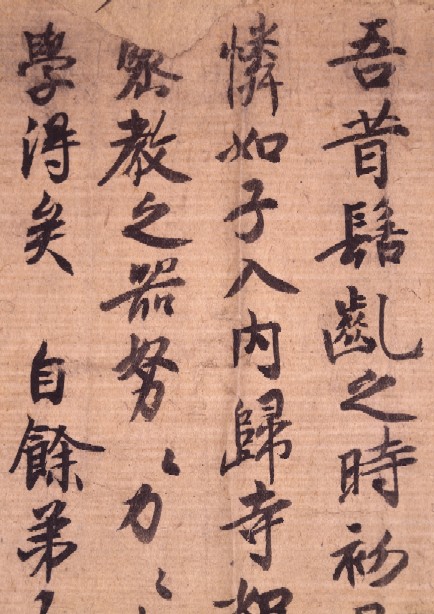 吾昔髫齓之時初
憐如子入内歸寺
密教之器努〻力〻
學得矣　自餘弟